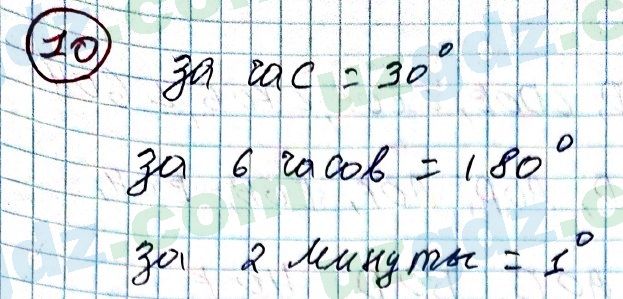 10
за час = 30°
за 6 часов = 180°
за 2 минуты = 1°